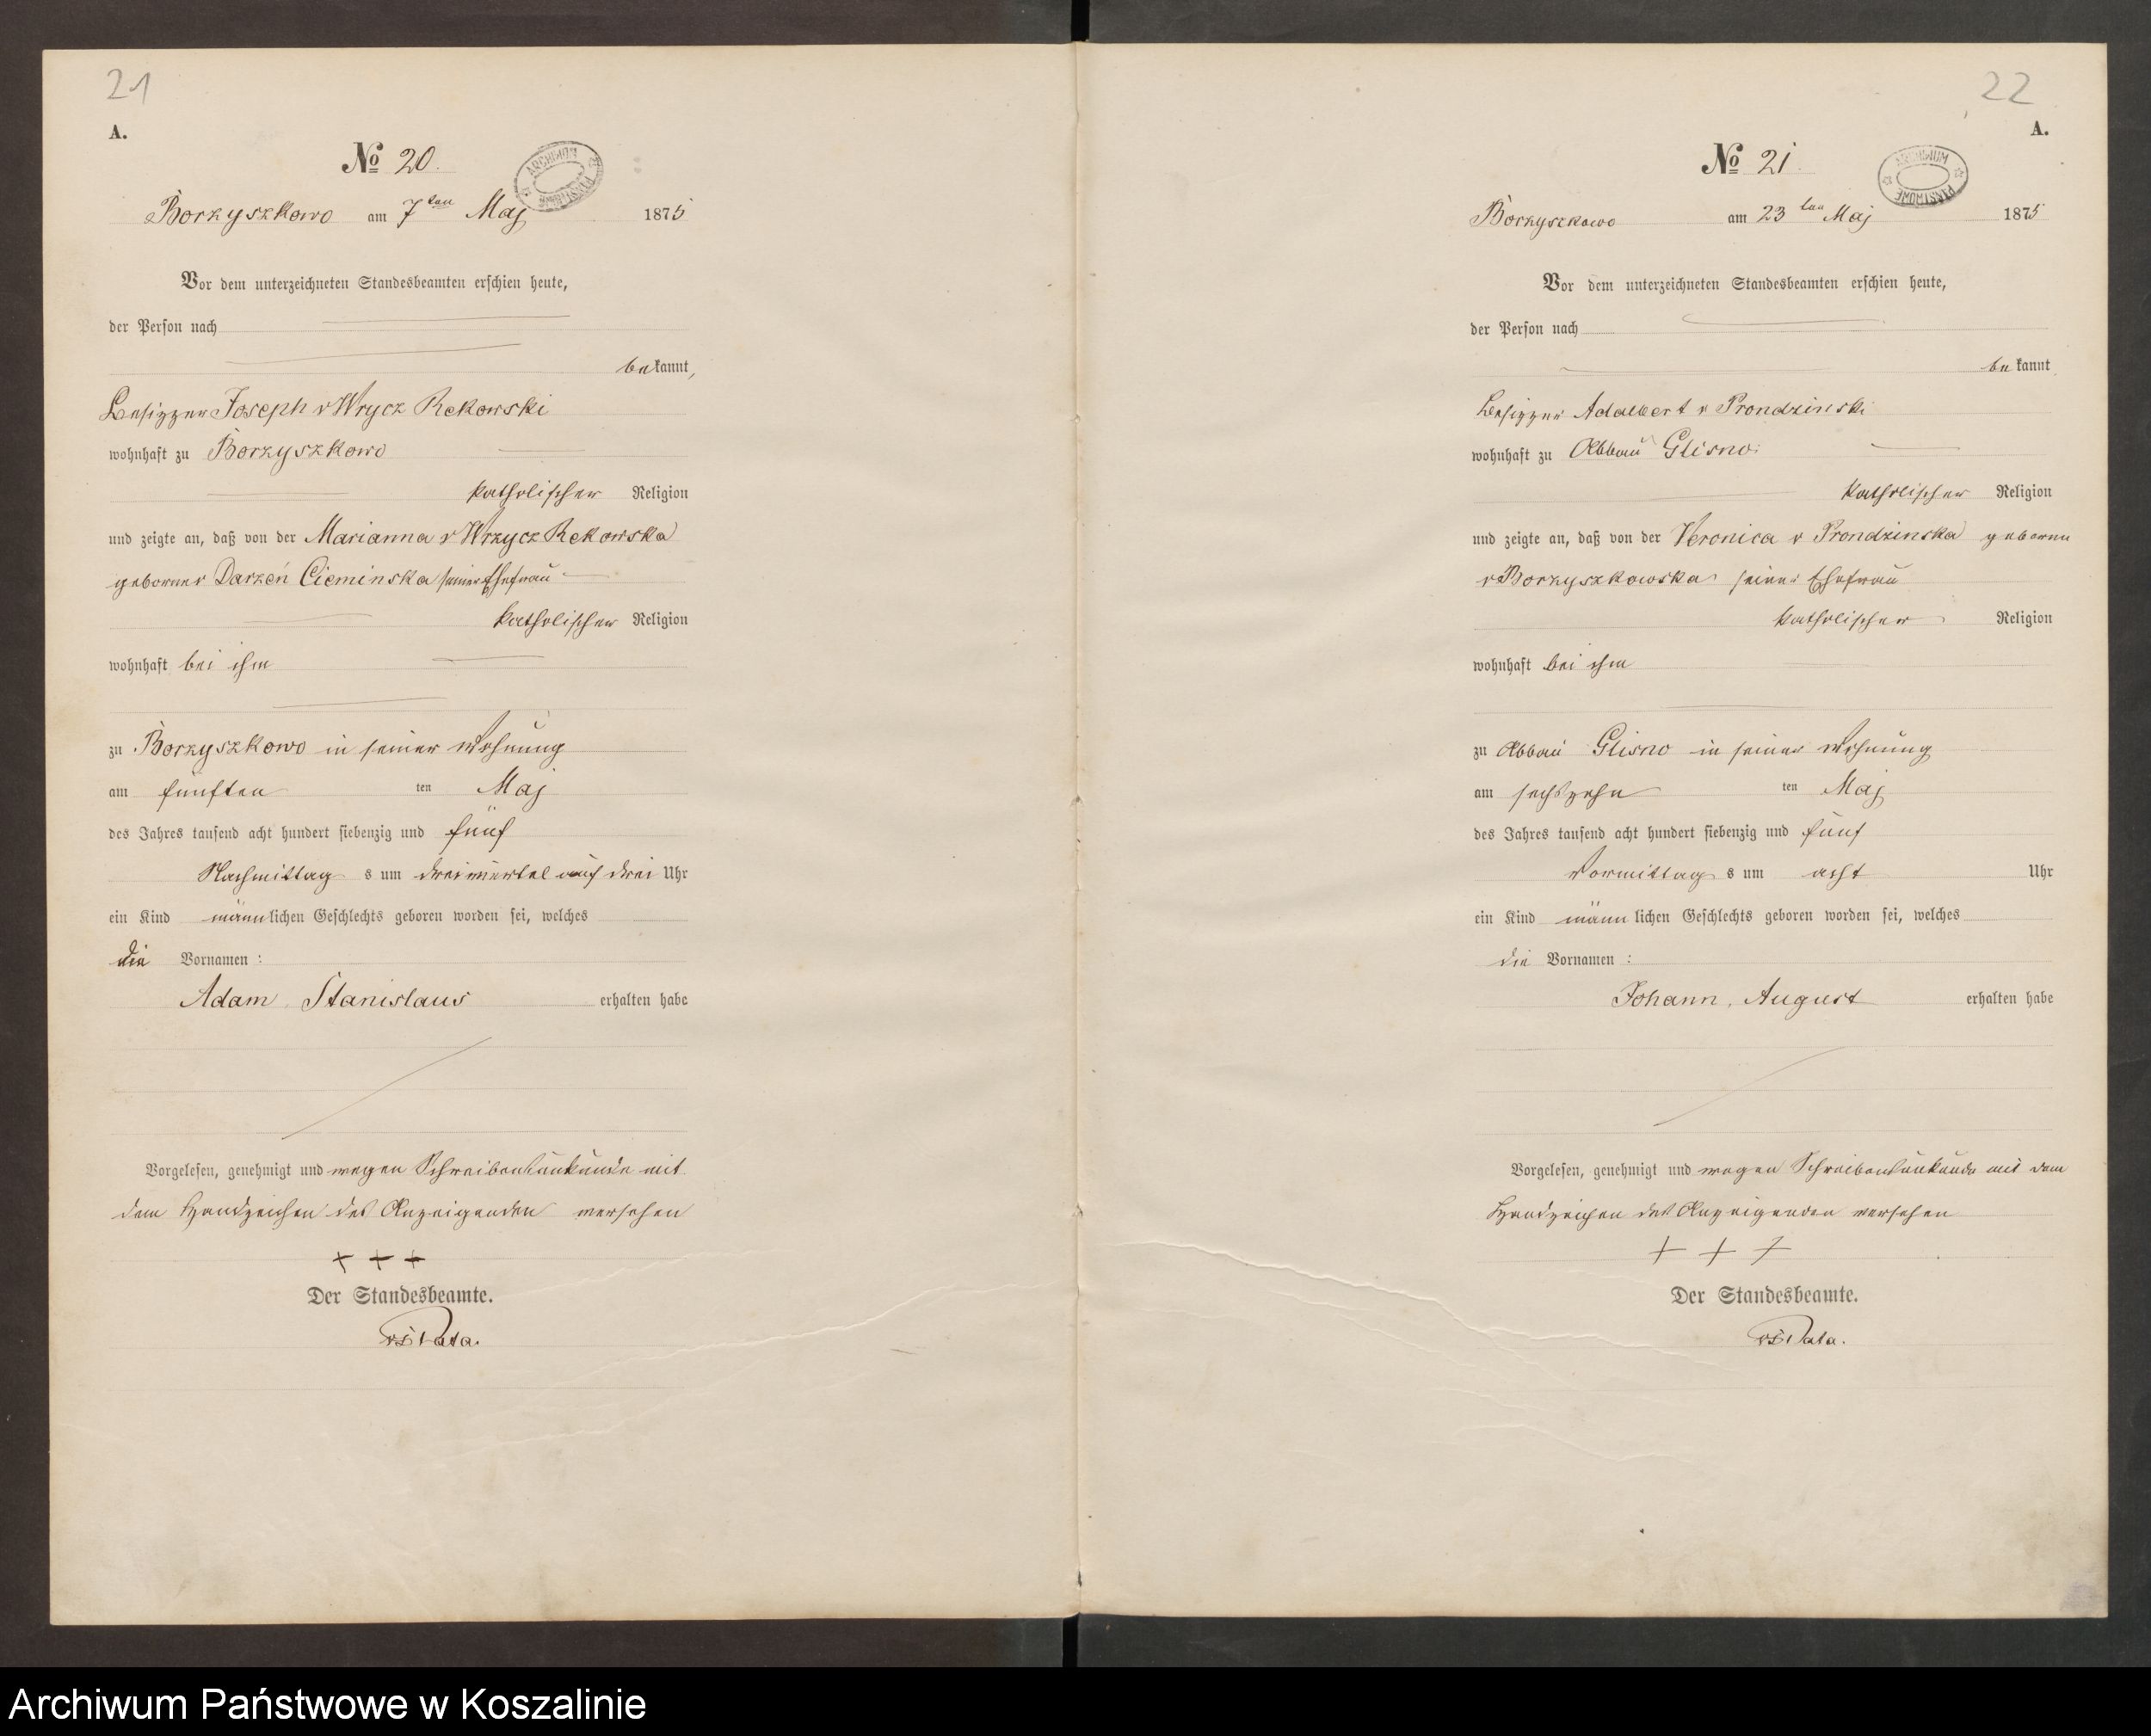 21
A.
No 20.
ARCHIWUM PAŃSTWOWE
Borzyszkowo am 7ten Maj 1875
Vor dem unterzeichneten Standesbeamten erschien heute,
der Person nach
bekannt,
Besitzer Joseph v Wrycz Rekowski
wohnhaft zu Borzyszkowo
katholischer Religion
und zeigte an, daß von der Marianna v Wrzycz Rekowska
geborner Darzeń Cieminska seiner Ehefrau
katholischer Religion
wohnhaft bei ihm
zu Borzyszkowo in seiner Wohnung
am fünften ten Maj
des Jahres tausend acht hundert siebenzig und fünf
Nachmittags um dreiviertel auf drei Uhr
ein Kind männlichen Geschlechts geboren worden sei, welches
die Vornamen :
Adam, Stanislaus erhalten habe
Vorgelesen, genehmigt und wegen Schreibensunkunde mit
dem Handzeichen des Anzeigenden versehen
+ + +
Der Standesbeamte.
22
A.
No 21.
ARCHIWUM PAŃSTWOWE
Borzyszkowo am 23ten Maj 1875
Vor dem unterzeichneten Standesbeamten erschien heute,
der Person nach
bekannt
Besitzer Adalbert v Prondzinski
wohnhaft zu Abbau Glisno
katholischer Religion
und zeigte an, daß von der Veronica v Prondzinska geborene
v Borzyszkowska seiner Ehefrau
katholischer Religion
wohnhaft bei ihm
zu Abbau Glisno in seiner Wohnung
am sechszehn ten Maj
des Jahres tausend acht hundert siebenzig und fünf
Vormittags um acht Uhr
ein Kind männlichen Geschlechts geboren worden sei, welches
die Vornamen :
Johann, August erhalten habe
Vorgelesen, genehmigt und wegen Schreibensunkunde mit dem
Handzeichen des Anzeigenden versehen
+ + +
Der Standesbeamte.
Archiwum Państwowe w Koszalinie